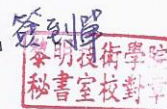 簽到單
黎明技術學院
秘書室校對章